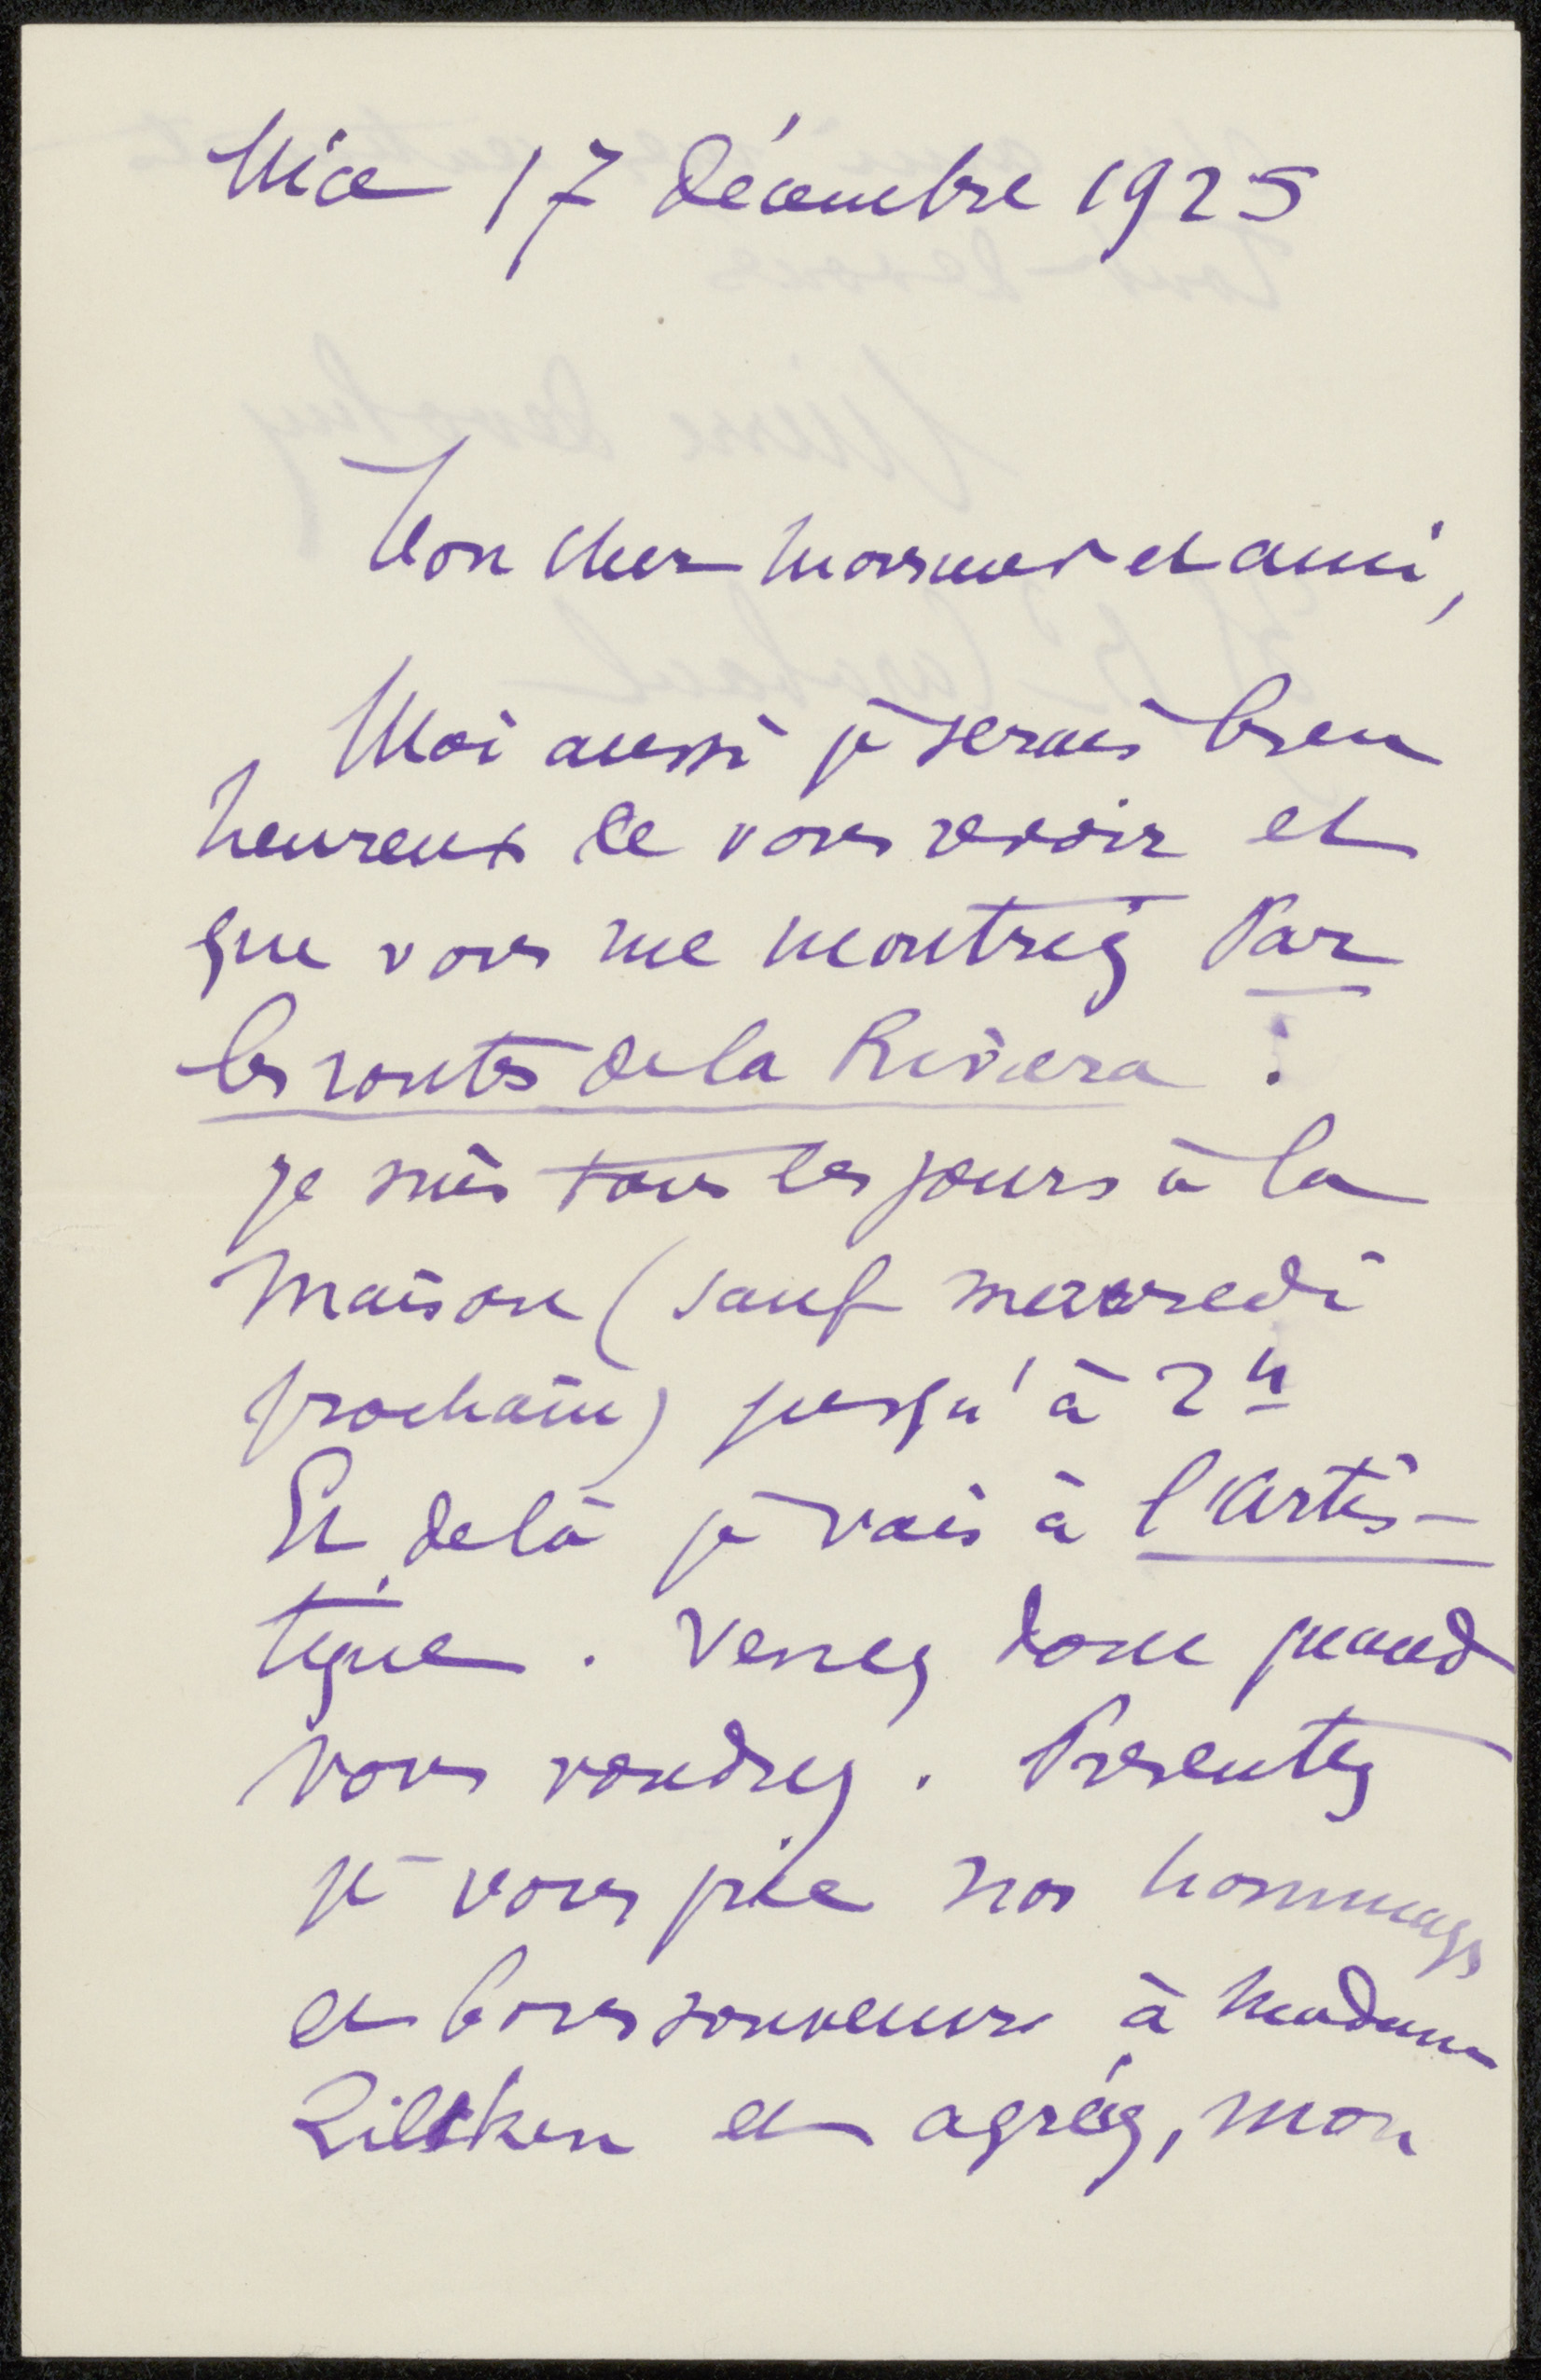 Nice 17 décembre 1925
Mon cher monsieur et ami,
Moi aussi je serais bien
heureux de vous revoir et
que vous me montriez Par
les routes de la Riviera.
je suis tous les jours à la
maison (sauf mercredi
prochain) jusqu'à 2h
Et de là je vais à l'Artis-
tique. Venez donc quand
vous voudrez. Présentez
je vous prie nos hommages
et bons souvenirs à Madame
Zilcken et agréez, mon